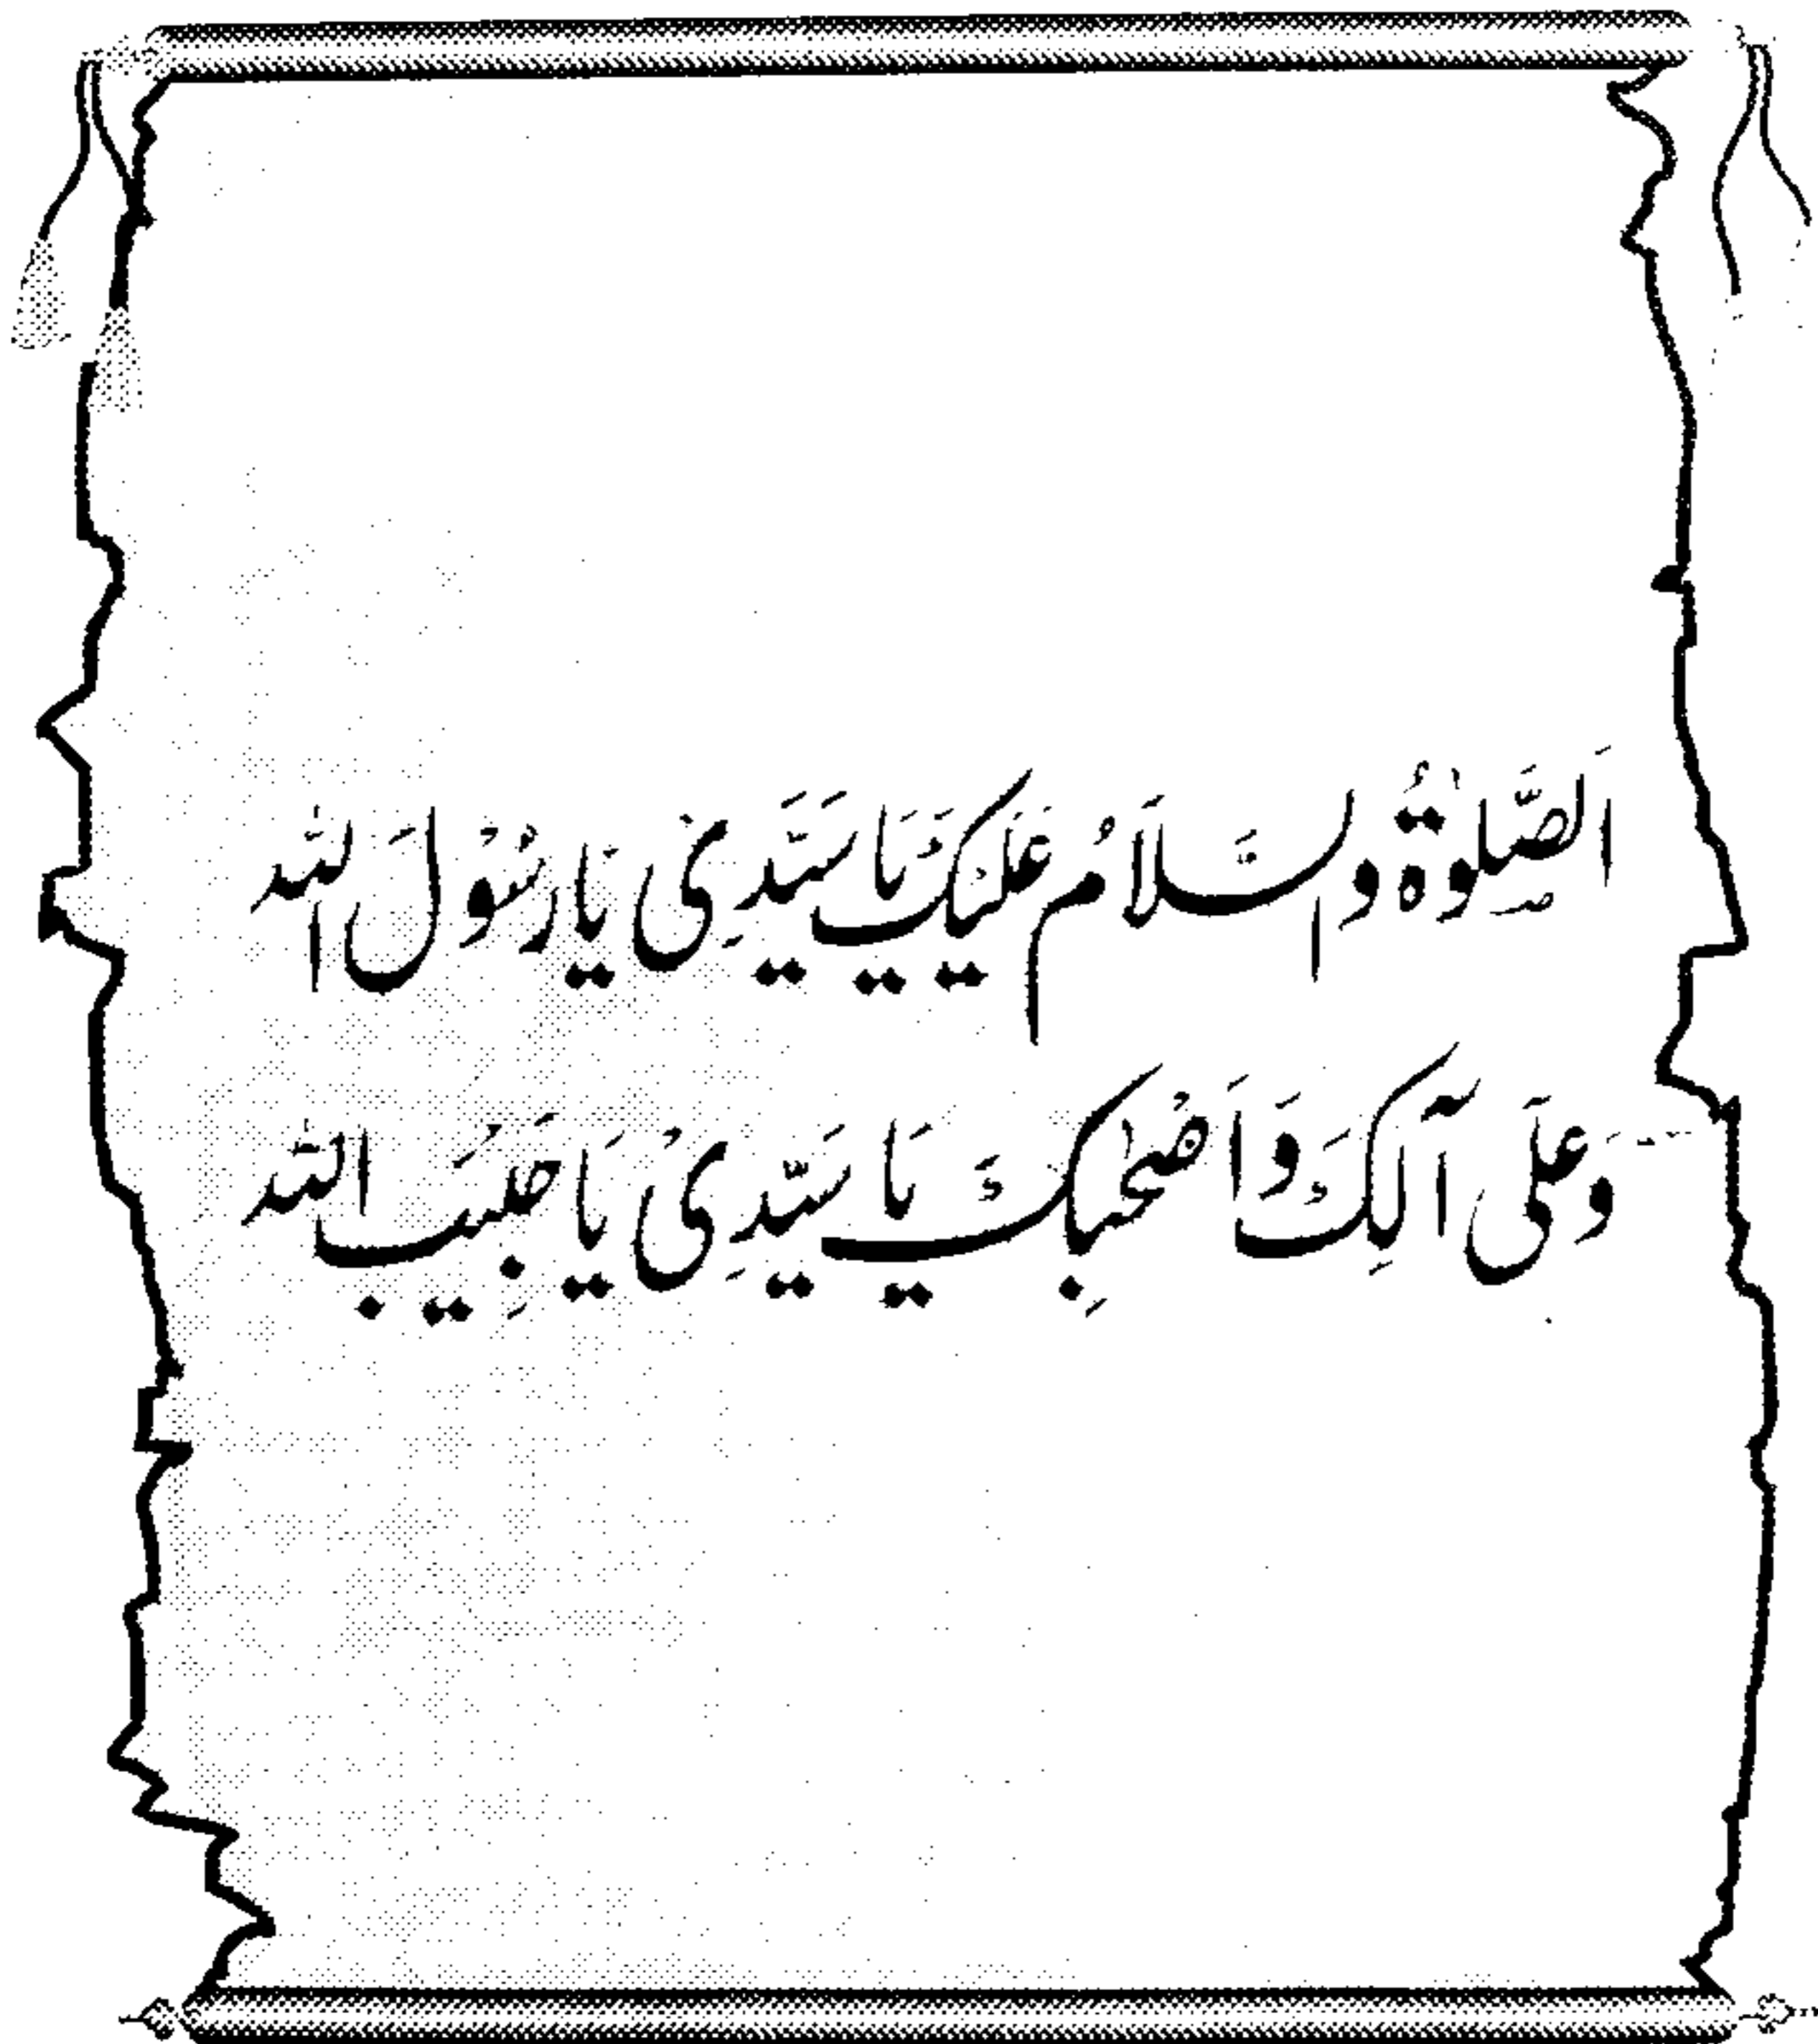 اَلصَّلٰوۃُ وَالسَّلَامُ عَلَیْکَ یَا سَیَّدِیْ یَا رَسُوْلَ اللّٰہِ
وَعَلٰی آلِکَ وَاَصْحٰبِکَ یَا سَیَّدِیْ یَا حَبِیْبَ اللّٰہِ